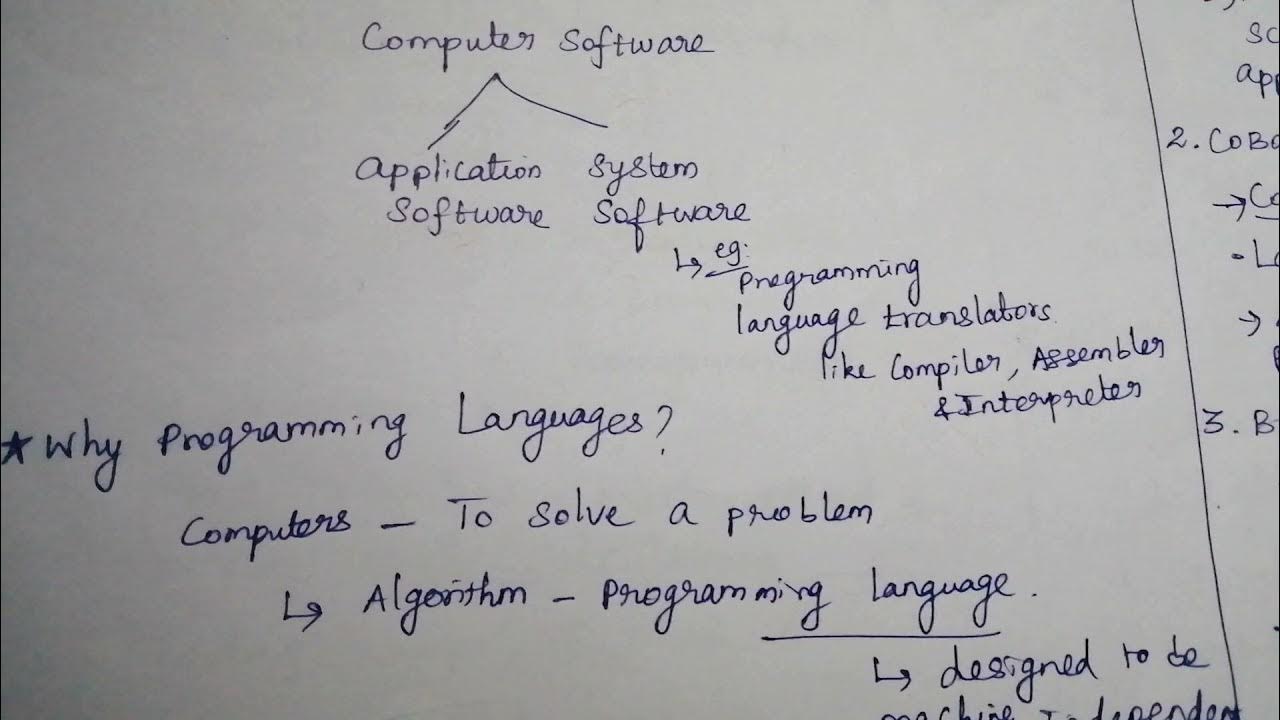 Computer Software
Application System
Software Software
↳ eg:
Programming
language translators
like Compiler, Assembler
& Interpreter
★ Why Programming Languages?
Computers – To solve a problem
↳ Algorithm – Programming language.
↳ designed to be
machine Independent
2. COBO
→ Co
3. B